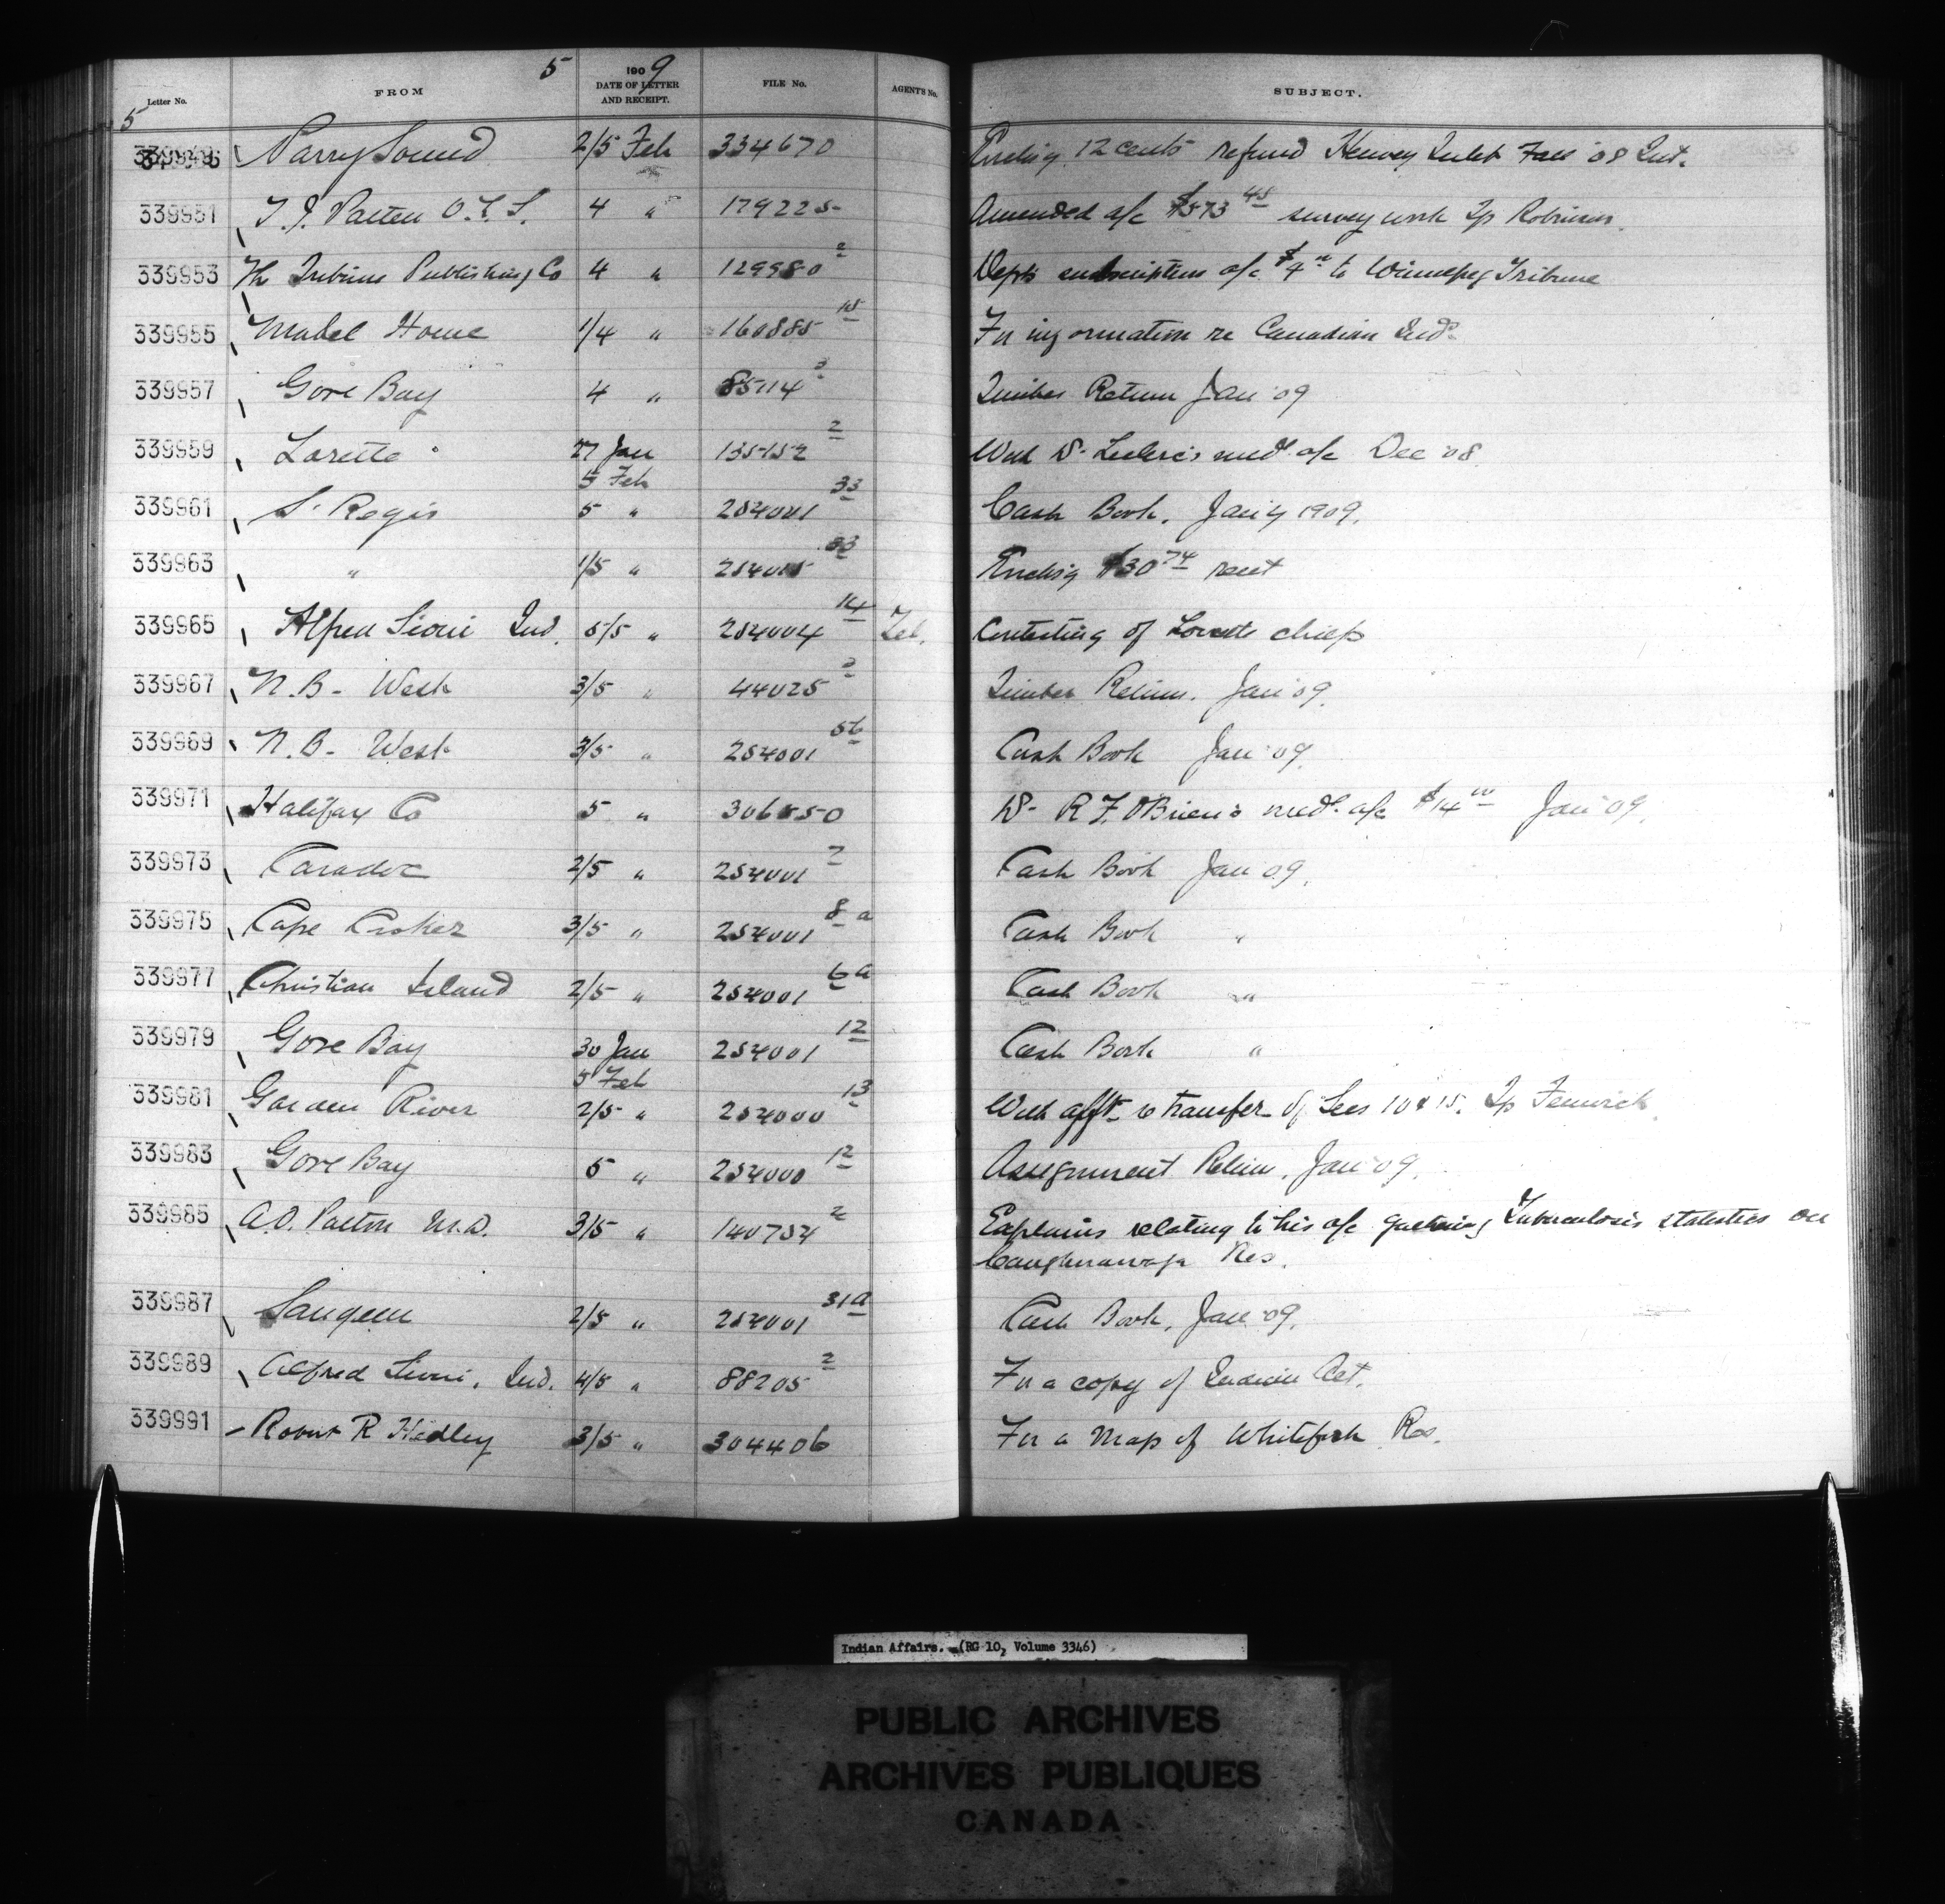 5 1909
Letter No. FROM DATE OF LETTER AND RECEIPT. FILE No. AGENT'S No. SUBJECT.
5
339949 Parry Sound 2/5 Feb 334670 Encting 12 cents refund Henvey Inlet Fall '08 Int.
339951 T.J. Patten O.L.S. 4 " 179225 Amended a/c $573 48 survey work Tp Robinson.
339953 The Tribune Publishing Co 4 " 129980 2 Dept's subscription a/c $4 00 to Winnipeg Tribune
339955 Mabel Howe 1/4 " 160885 18 For information re Canadian Inds.
339957 Gore Bay 4 " 85114 3 Timber Return Jan '09
339959 Lorette 27 Jan 5 Feb 135152 2 With Dr. Leclerc's med. a/c Dec '08.
339961 St. Regis 5 " 254001 33 Cash Book. Jan'y 1909.
339963 " 1/5 " 254015 33 Encding $30 74 rent
339965 Alfred Sioui Ind. 5/5 " 254004 14 Tel. Contesting of Lorette chiefs
339967 N.B. - West 3/5 " 44025 2 Timber Return. Jan '09.
339969 N.B. - West 3/5 " 254001 56 Cash Book Jan '09.
339971 Halifax Co 5 " 306550 Dr. R F. O'Brien's med. a/c $14 00 Jan '09.
339973 Caradoc 2/5 " 254001 7 Cash Book Jan '09.
339975 Cape Croker 3/5 " 254001 8 a Cash Book "
339977 Christian Island 2/5 " 254001 6 a Cash Book "
339979 Gore Bay 30 Jan 5 Feb 254001 12 Cash Book "
339981 Garden River 2/5 " 254000 13 With afft. to transfer of Secs 10 & 15. Tp Fenwick.
339983 Gore Bay 5 " 254000 12 Assignment Return, Jan '09.
339985 A.O. Patton M.D. 3/5 " 140754 2 Explains relating to his a/c gathering Tuberculosis statistics on
Caughnawaga Res.
339987 Saugeen 2/5 " 254001 31a Cash Book, Jan '09.
339989 Alfred Sioui, Ind. 4/5 " 88205 2 For a copy of Indian Act.
339991 Robert R Hedley 3/5 " 304406 For a Map of Whitefish Res.
Indian Affairs. (RG 10, Volume 3346)
PUBLIC ARCHIVES
ARCHIVES PUBLIQUES
CANADA